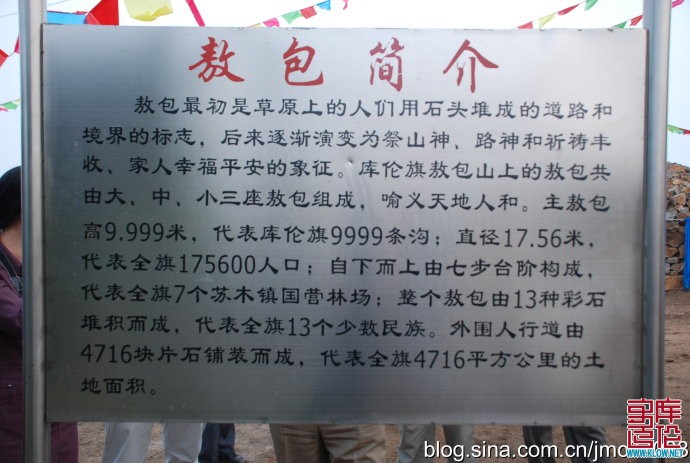 敖包简介
敖包最初是草原上的人们用石头堆成的道路和
境界的标志，后来逐渐演变为祭山神、路神和祈祷丰
收、家人幸福平安的象征。库伦旗敖包山上的敖包共
由大、中、小三座敖包组成，喻义天地人和。主敖包
高9.999米，代表库伦旗9999条沟；直径17.56米，
代表全旗175600人口；自下而上由七步台阶构成，
代表全旗7个苏木镇国营林场；整个敖包由13种彩石
堆积而成，代表全旗13个少数民族。外围人行道由
4716块片石铺装而成，代表全旗4716平方公里的土
地面积。
WWW.KLOW.NET